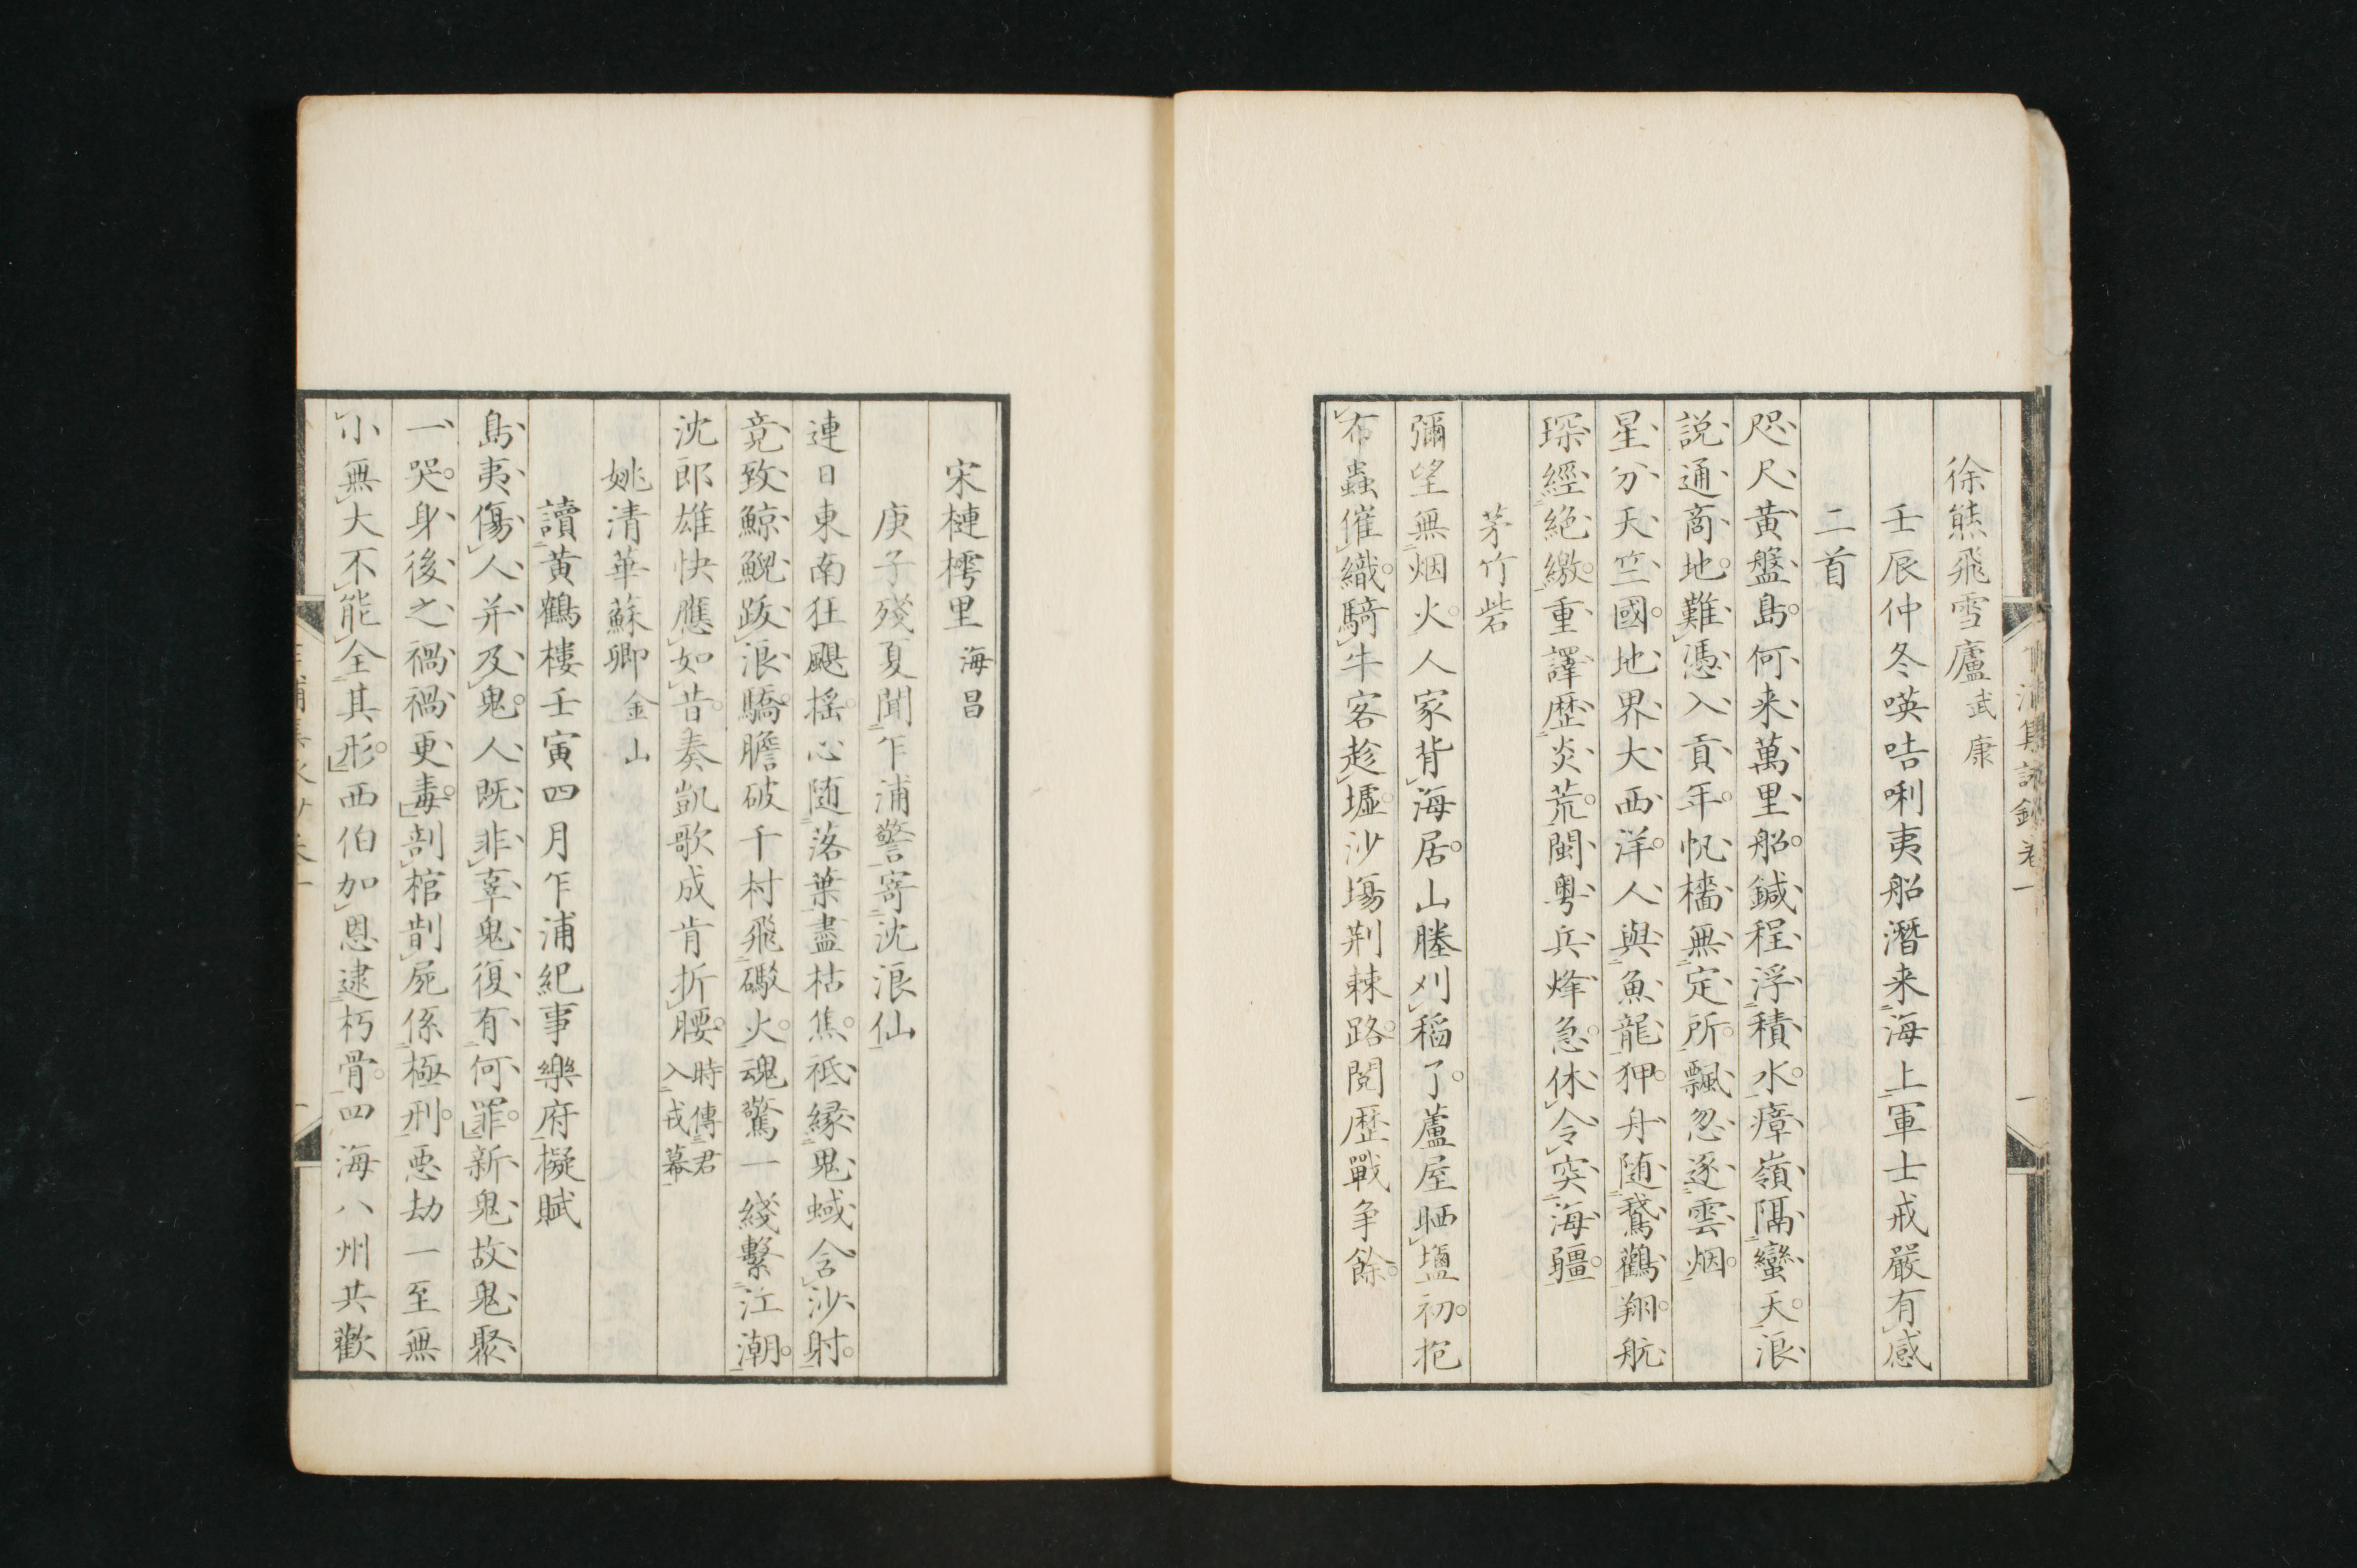 徐熊飛雪廬武康
壬辰仲冬㗲咭唎夷船潛来海上軍士戒嚴有感
二首
咫尺黄盤島何来萬里船鍼程浮積水瘴嶺隔蠻天浪
説通商地難憑入貢年帆檣無定所飄忽逐雲烟
星分天竺國地界大西洋人與魚龍狎舟随鵞鸛翔航
琛經絶繳重譯歴炎荒閩粤兵烽急休令突海疆
茅竹砦
彌望無烟火人家背海居山塍刈稻了蘆屋晒鹽初抱
布蟲催織騎牛客趁墟沙塲荆棘路閲歴戰争餘
宋槤樗里海昌
庚子殘夏聞乍浦警寄沈浪仙
連日東南狂颶揺心随落葉盡枯焦祗縁鬼蜮含沙射
竟致鯨鯢跋浪驕膽破千村飛礮火魂驚一綫繫江潮
沈郎雄快應如昔奏凱歌成肯折腰時傳君入戎幕
姚清華蘇卿金山
讀黄鶴樓壬寅四月乍浦紀事樂府擬賦
島夷傷人并及鬼人既非辜鬼復有何罪新鬼故鬼聚
一哭身後之禍禍更毒剖棺剒屍係極刑悪劫一至無
小無大不能全其形西伯加恩逮朽骨四海八州共歡
浦集詠鈔卷一
一